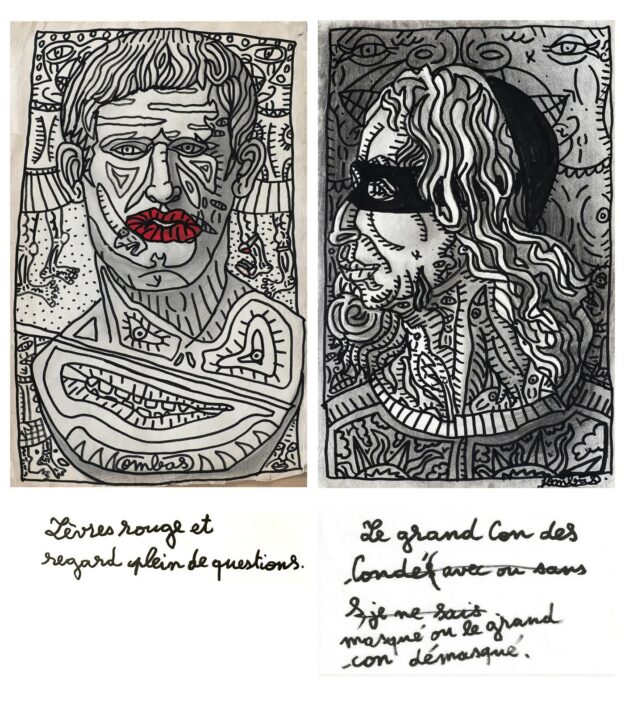 Combas
Lèvres rouge et
regard plein de questions.
Combas.
Le grand Con des
Condé (avec ou sans
S, je ne sais
masqué ou le grand
con démasqué.